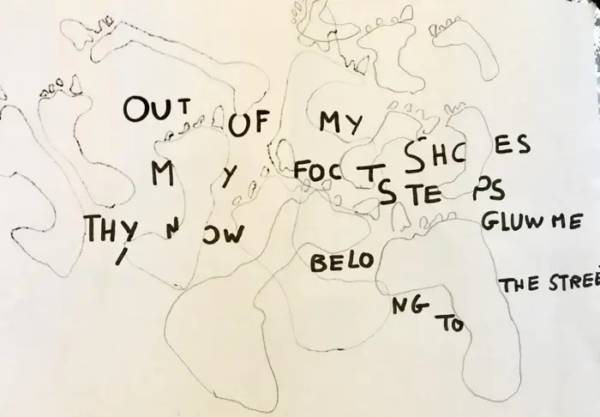 OUT OF MY SHOES
MY FOCT STEPS
THY NOW GLUW ME
BELONG TO THE STREE